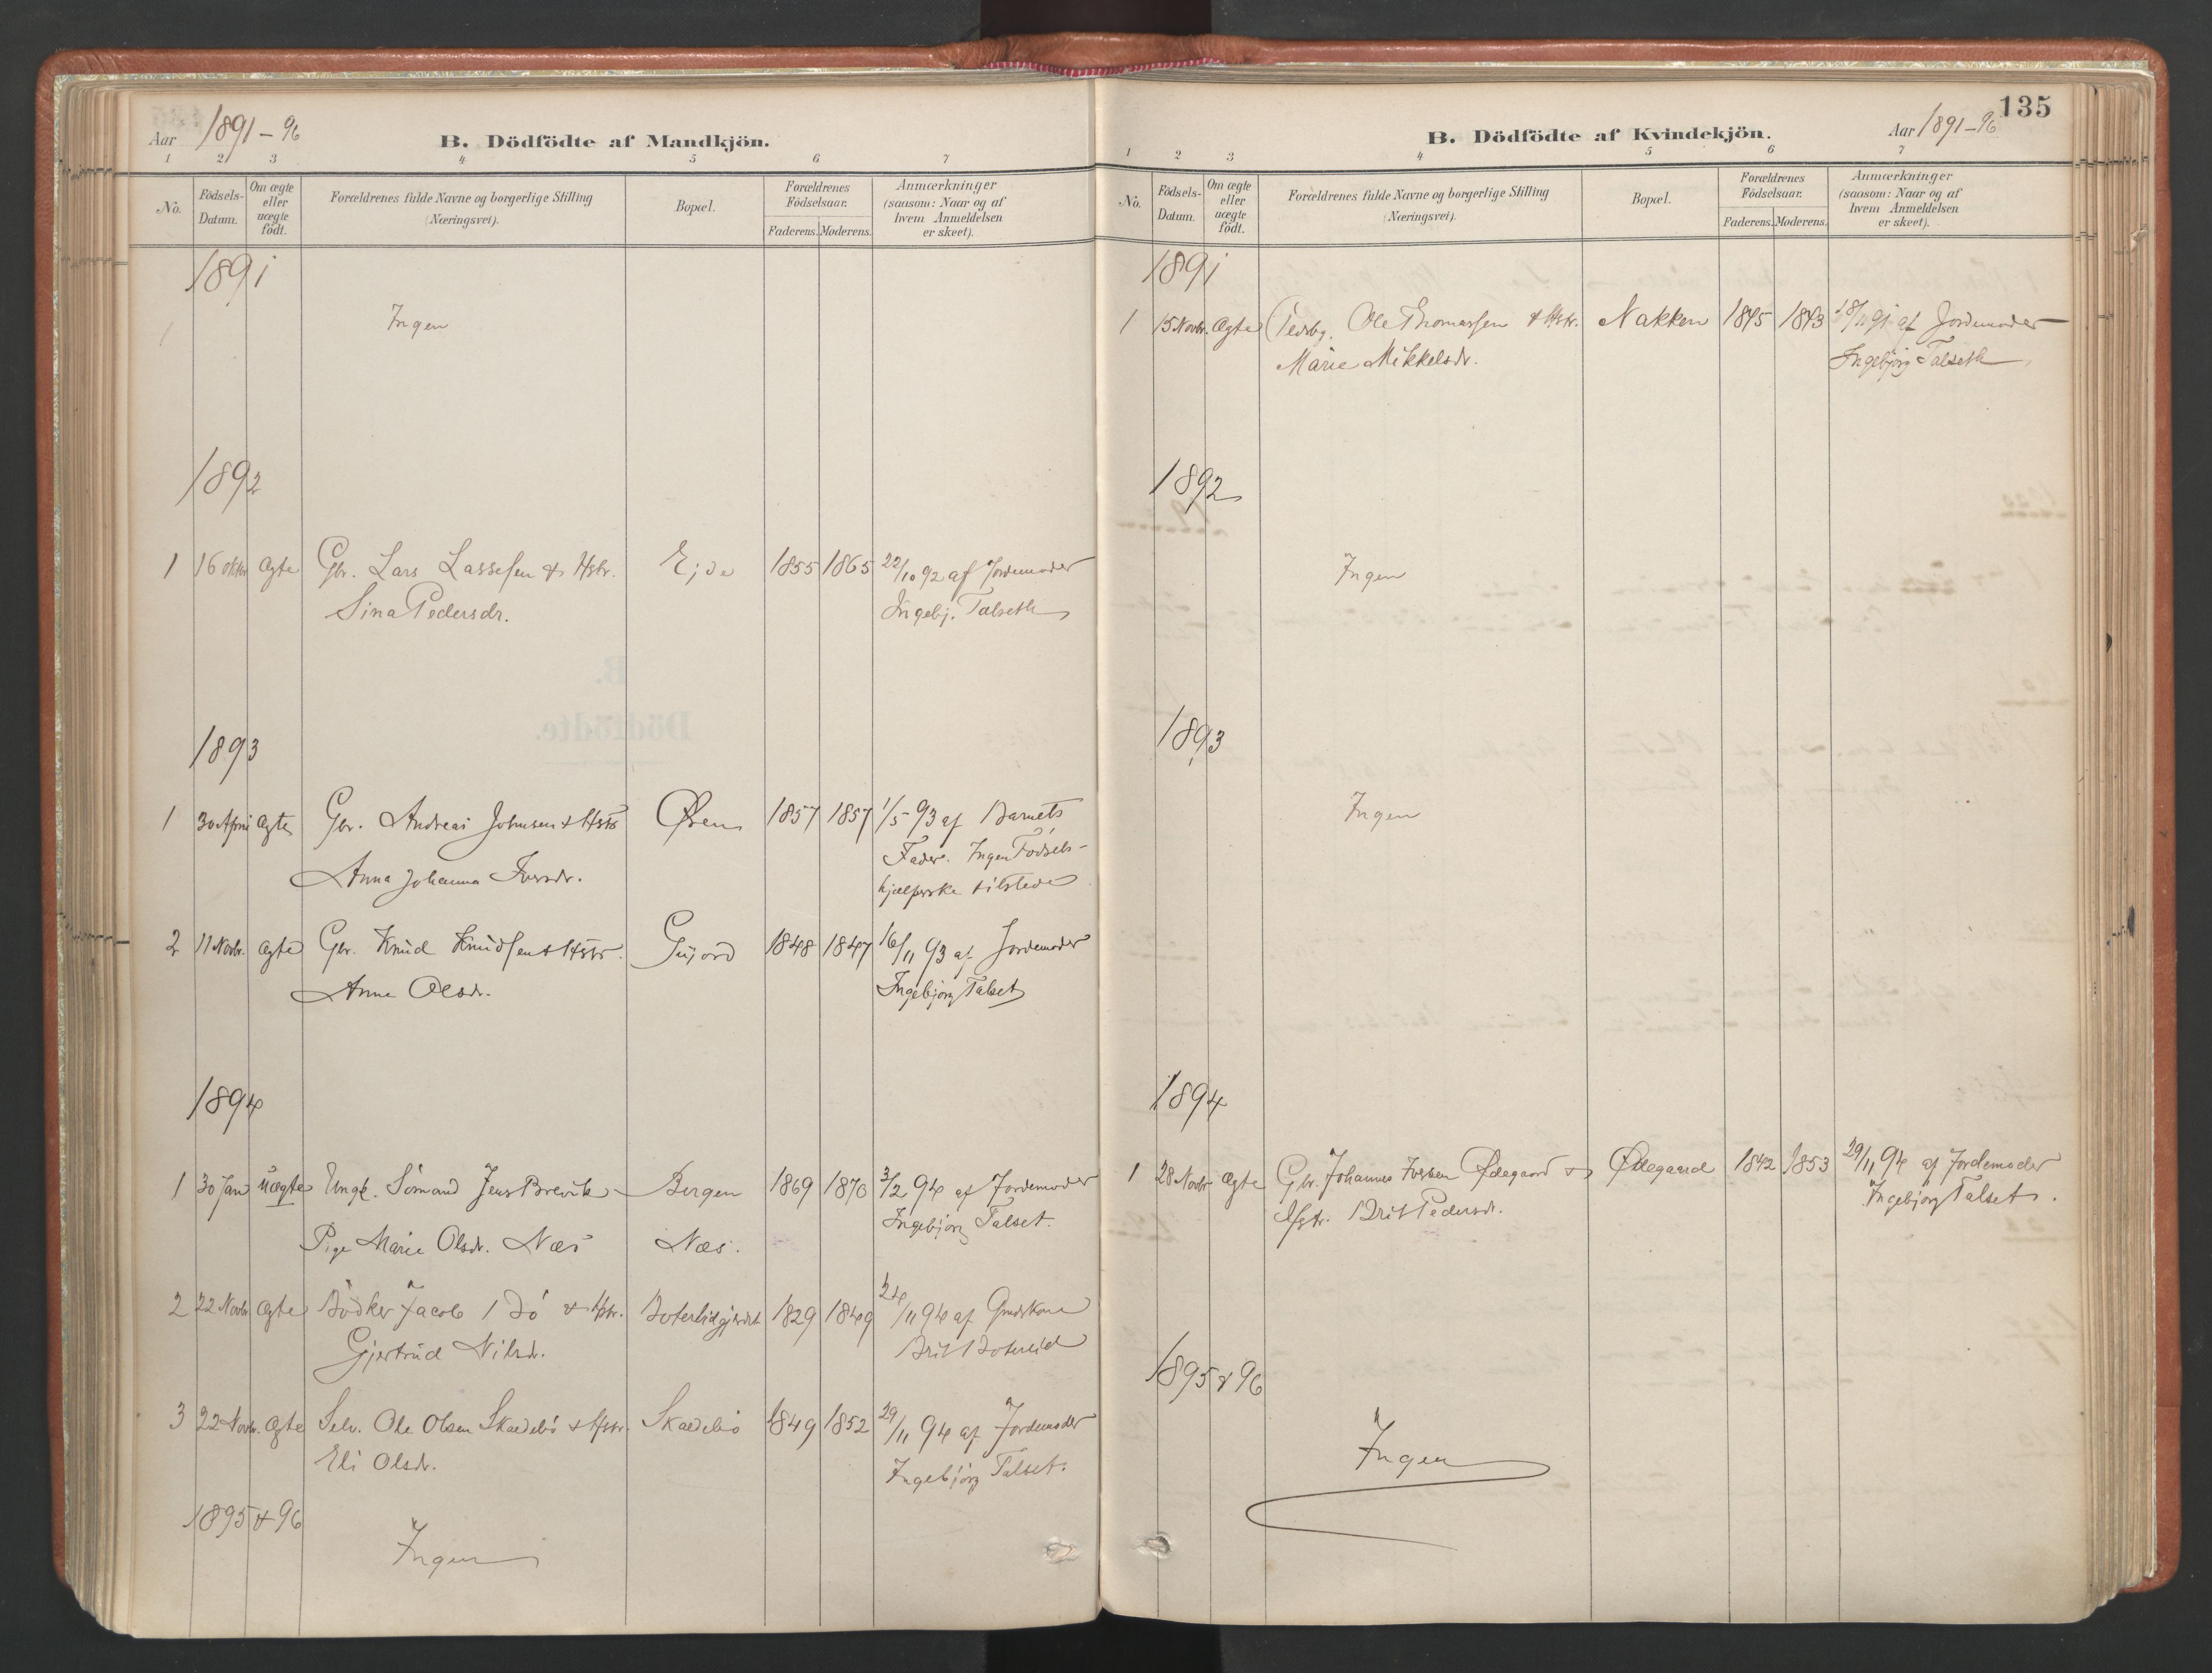 Aar 1891-96
B. Dödfödte af Mandkjön.
1 2 3 4 5 6 7
No.
Födsels-Datum.
Om ægte eller uægte födt.
Forældrenes fulde Navne og borgerlige Stilling (Næringsvei).
Bopæl.
Forældrenes Födselsaar.
Faderens. Moderens.
Anmærkninger (saasom: Naar og af hvem Anmeldelsen er skeet).
1891
1 Ingen
1892
1 16 oktbr ægte Gbr. Lars Lassesen & Hstr. Ejde 1855 1865 22/10 92 af Jordemoder
Sina Pedersdr. Ingebj. Talseth
1893
1 30 April ægte Gbr. Andreas Johnsen & Hstr Øren 1857 1857 1/5 93 af Barnets
Fader. Ingen Fødsels-
Anna Johanna Iversdr. hjælperske tilstede
2 11 Novbr. ægte Gbr. Knud Knudsen & Hstr. Gujord 1848 1847 16/11 93 af Jordemoder
Anne Olsdr. Ingebjørg Talset
1894
1 30 Jan uægte Ungk. Sömand Jens Brevik - Bergen 1869 1870 3/2 94 af Jordemoder
Ingebjørg Talset.
Pige Marie Olsdr. Næs Næs.
2 22 Novbr ægte Bödker Jacob & Hstr. 1829 1849 24/11 94 af
Gjertrud Nilsdr. Brit
3 22 Novbr. ægte Selv. Ole Olsen Skaelebö & Hstr. Skaelebö 1849 1852 29/11 94 af Jordemoder
Eli Olsdr. Ingebjörg Talset.
1895 & 96
Ingen
135
B. Dödfödte af Kvindekjön.
Aar 1891-96
1 2 3 4 5 6 7
No.
Födsels-Datum.
Om ægte eller uægte födt.
Forældrenes fulde Navne og borgerlige Stilling (Næringsvei).
Bopæl.
Forældrenes Födselsaar.
Faderens. Moderens.
Anmærkninger (saasom: Naar og af hvem Anmeldelsen er skeet).
1891
1 15 Novbr. ægte Ole Thomassen & Hstr. Nakken 1845 1843 18/11 91 af Jordemoder
Marie Mikkelsdr. Ingebjörg Talseth
1892
Ingen
1893
Ingen
1894
1 28 Novbr ægte Gbr. Johannes Iversen Ødegaard & Ødegaard 1842 1853 29/11 94 af Jordemoder
Hstr. Brit Pedersdr. Ingebjörg Talset.
1895 & 96
Ingen